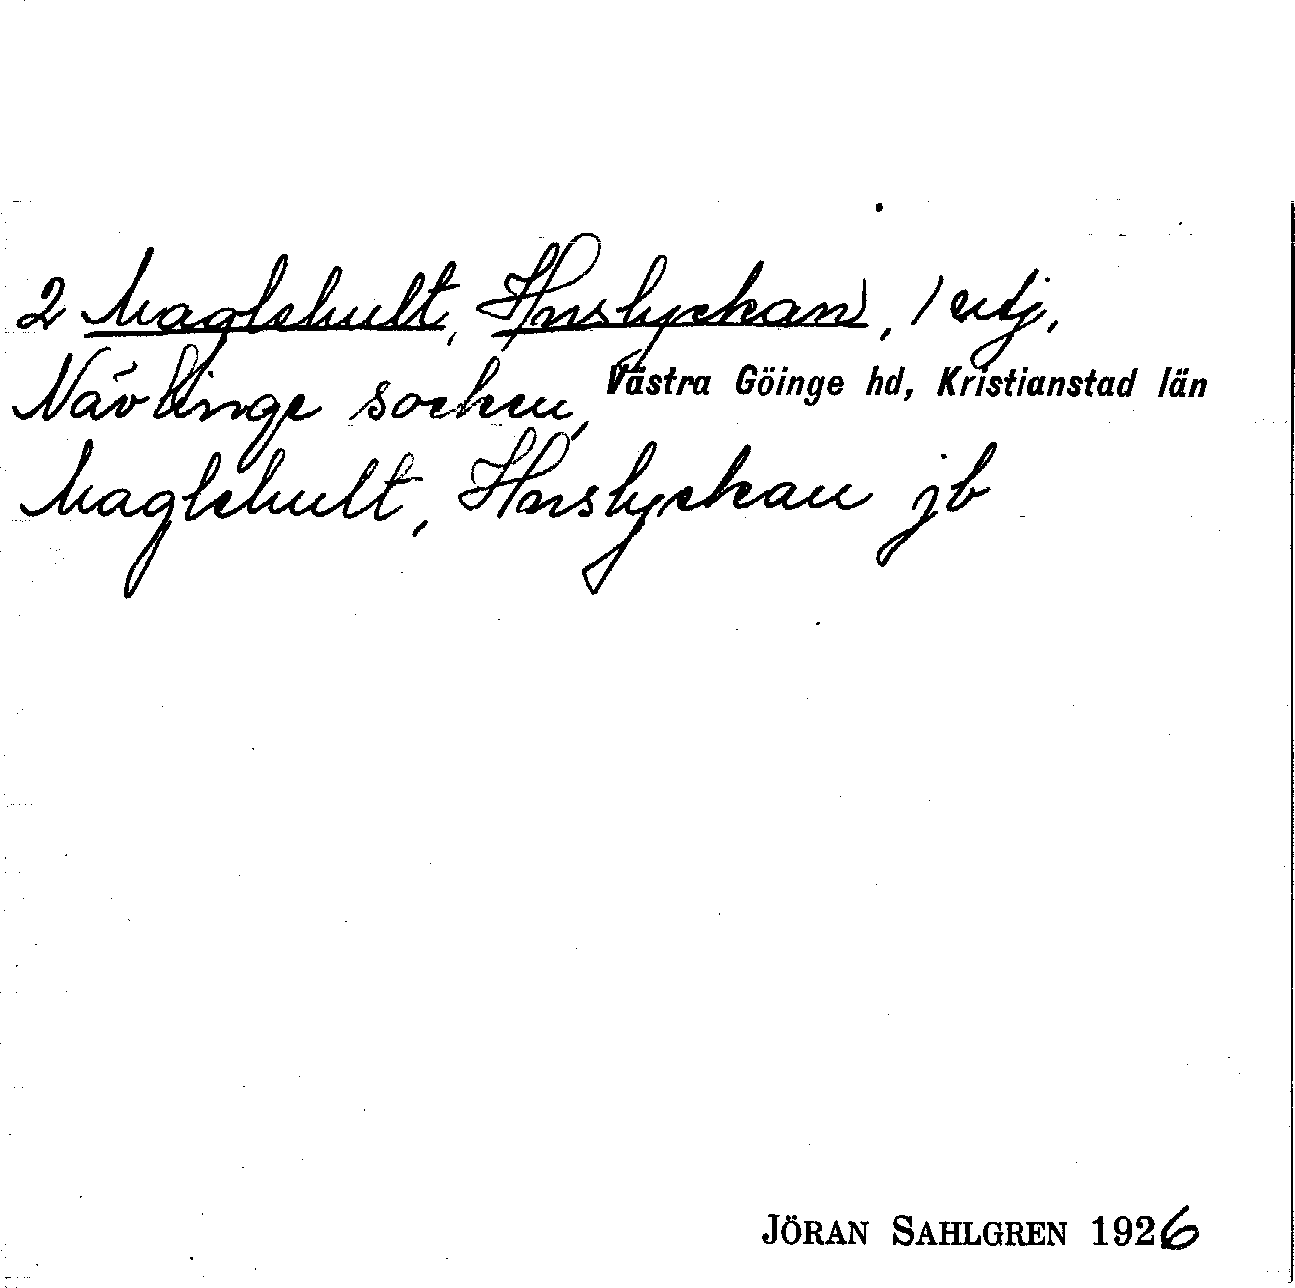 2 Maglehult, Huslyckan, 1 utj,
Nävlinge socken, Västra Göinge hd, Kristianstad län
Maglehult, Huslyckan jb
JÖRAN SAHLGREN 1926